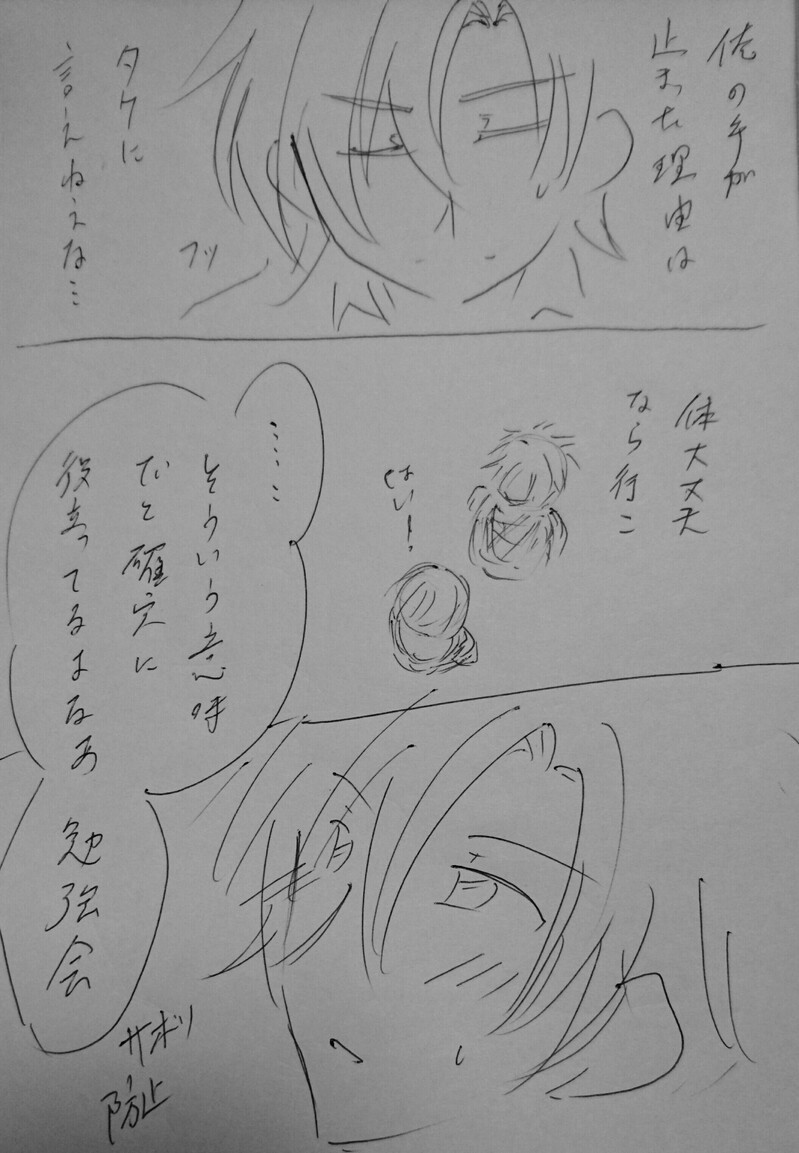 俺の手が
止まった理由は
タケに
言えねえな…
フッ
体大丈夫
なら行こ
はい!
……
そういう意味
だと確実に
役立ってるよなあ
勉強会
サボリ
防止